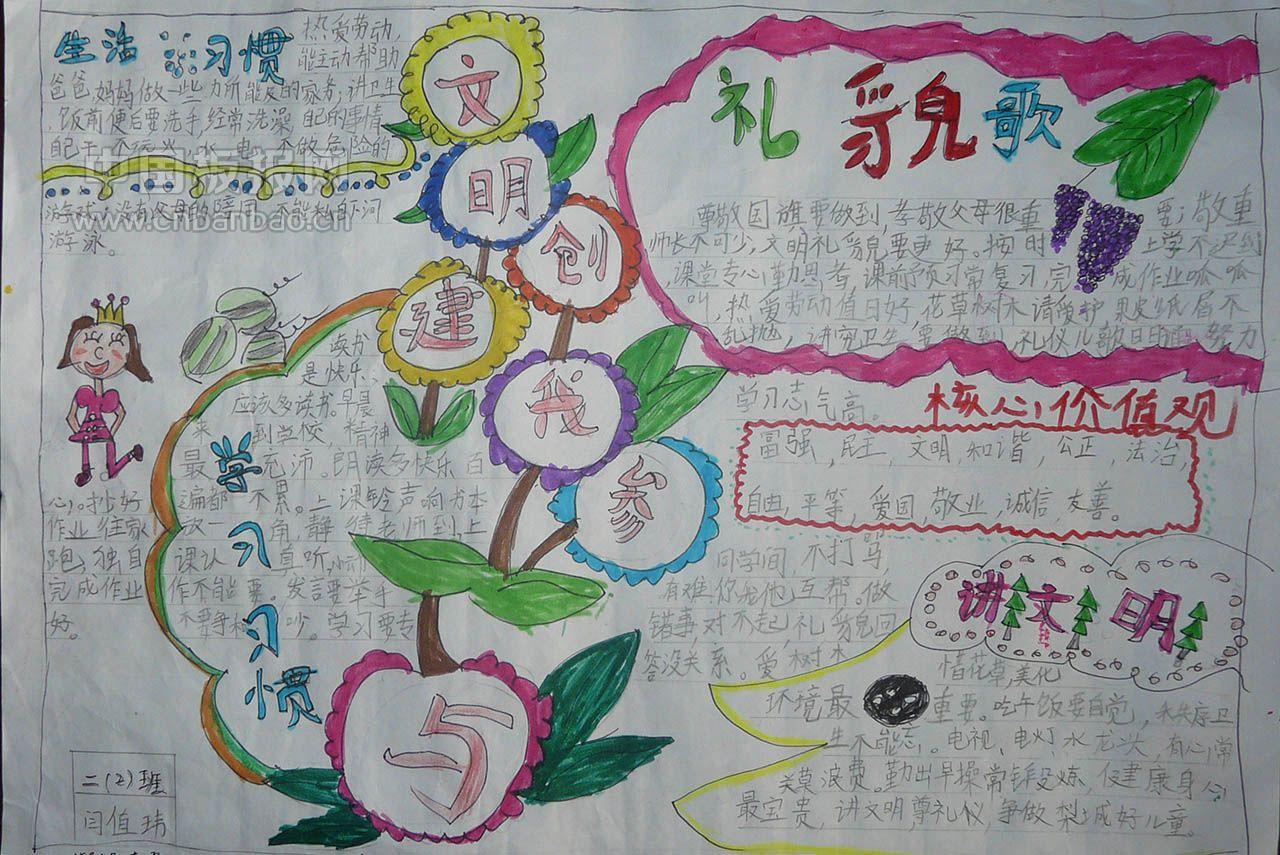 生活习惯
热爱劳动,
能主动帮助
爸爸妈妈做一些力所能及的家务,讲卫生
,饭前便后要洗手,经常洗澡 自己的事情
自己干 不 火 水 电 不做危险的
游戏,没有父母的陪同,不能私自下河
游泳。
中国板报网
www.cnbanbao.cn
文
明
创
建
我
参
与
礼貌歌
尊敬国旗要做到,孝敬父母很重要;敬重
师长不可少,文明礼貌要更好。按时上学不迟到
课堂专心勤思考,课前预习常复习,完成作业呱呱
叫,热爱劳动值日好 花草树木请爱护 果皮纸屑不
乱抛,讲究卫生要做到,礼仪儿歌日日 努力
学习志气高。
核心价值观
富强,民主,文明,和谐,公正,法治,
自由,平等,爱国,敬业,诚信,友善。
学习习惯
读书
是快乐、
应该多读书。早晨
来到学校,精神
最充沛。朗读多快乐百
遍都不累。上课铃声响书本
放一角,静待老师到,上
课认真听,
作不能耍。发言要举手
不要争 吵。学习要专
心。抄好
作业往家
跑,独自
完成作业
好。
讲文明
同学间,不打骂
有难,你我他互帮。做
错事对不起 礼貌回
答没关系。爱树木
惜花草,美化
环境最重要。吃午饭要自觉,秩序卫
生不能忘。电视、电灯水龙头,有心常
关莫浪费。勤出早操常锻炼,健康身心
最宝贵,讲文明,尊礼仪,争做梨城好儿童。
二(2)班
闫值玮